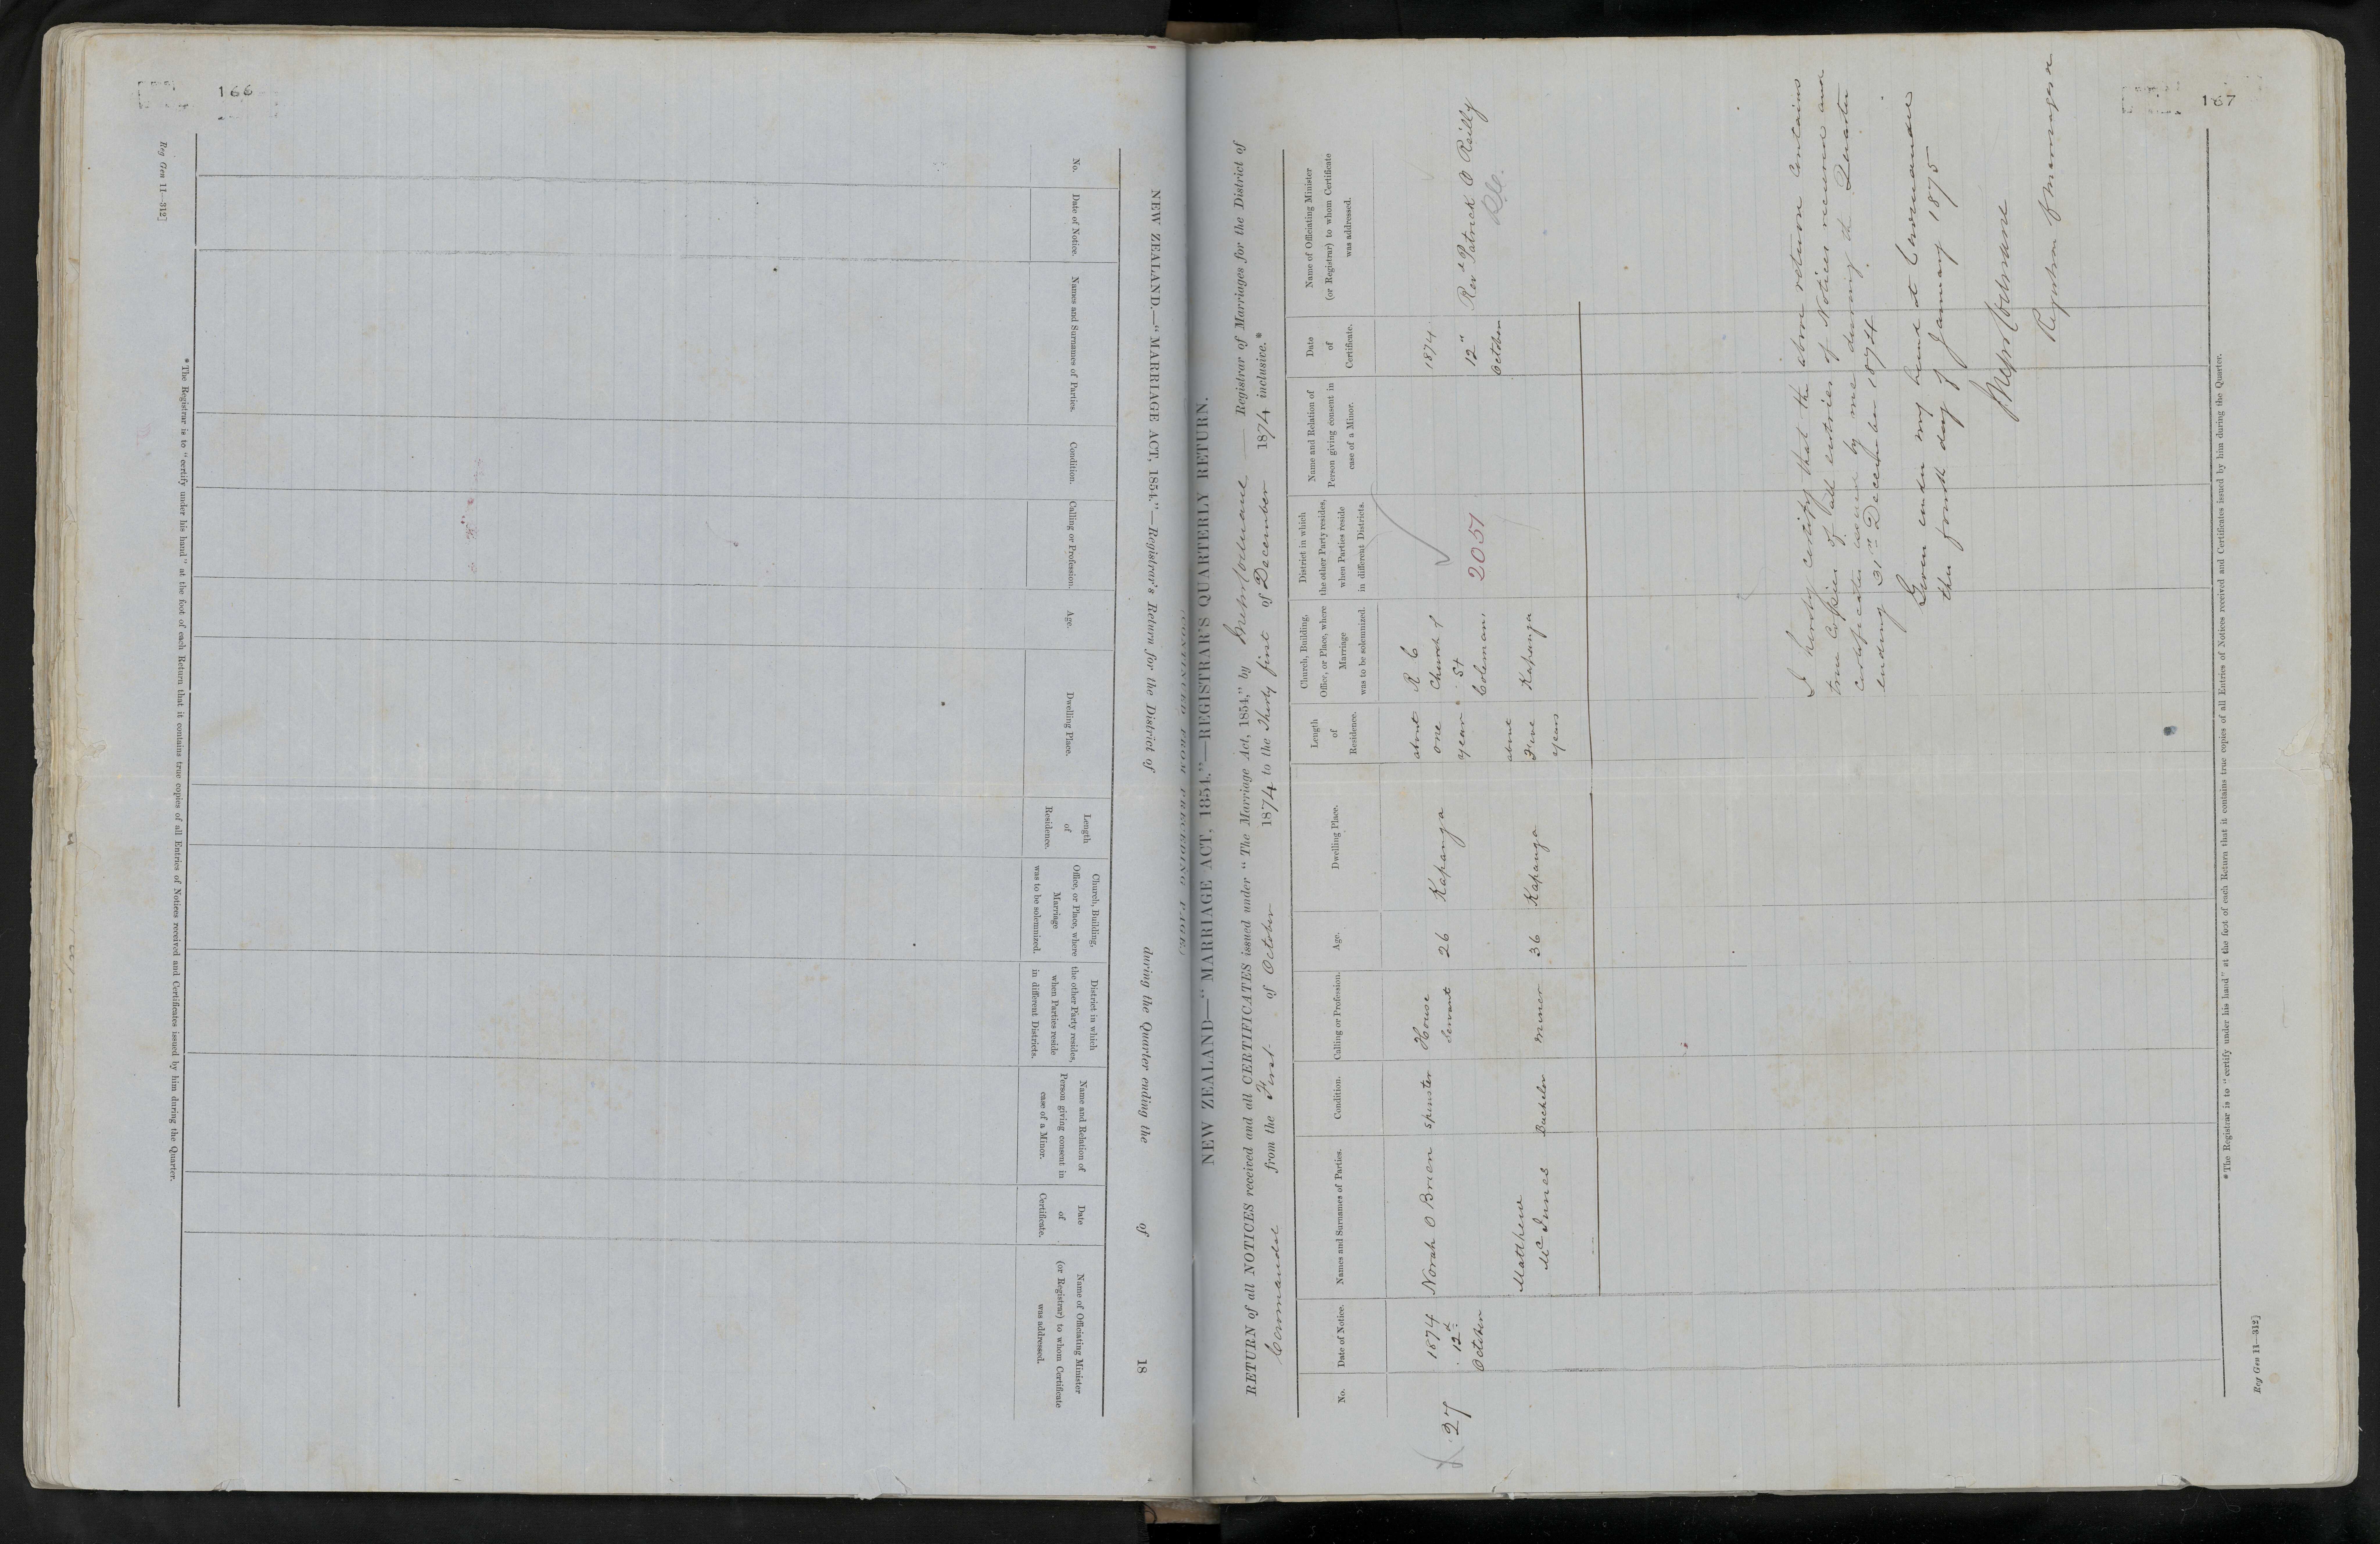 166
NEW ZEALAND.—"MARRIAGE ACT, 1854."—Registrar's Return for the District of during the Quarter ending the of 18
No.
Date of Notice.
Names and Surnames of Parties.
Condition.
Calling or Profession.
Age.
Dwelling Place.
Length
of
Residence.
Church, Building,
Office, or Place, where
Marriage
was to be solemnized.
District in which
the other Party resides,
when Parties reside
in different Districts.
Name and Relation of
Person giving consent in
case of a Minor.
Date
of
Certificate.
Name of Officiating Minister
(or Registrar) to whom Certificate
was addressed.
*The Registrar is to "certify under his hand" at the foot of each Return that it contains true copies of all Entries of Notices received and Certificates issued by him during the Quarter.
Reg Gen 11—312]
167
CONTINUED FROM PRECEDING PAGE.
NEW ZEALAND—"MARRIAGE ACT, 1854."—REGISTRAR'S QUARTERLY RETURN.
RETURN of all NOTICES received and all CERTIFICATES issued under "The Marriage Act, 1854," by Registrar of Marriages for the District of
Coromandel from the First of October 1874 to the Thirty first of December 1874 inclusive.*
No.
Date of Notice.
Names and Surnames of Parties.
Condition.
Calling or Profession.
Age.
Dwelling Place.
Length
of
Residence.
Church, Building,
Office, or Place, where
Marriage
was to be solemnized.
District in which
the other Party resides,
when Parties reside
in different Districts.
Name and Relation of
Person giving consent in
case of a Minor.
Date
of
Certificate.
Name of Officiating Minister
(or Registrar) to whom Certificate
was addressed.
27
1874
12th
October
Norah O Brien
Spinster
House
Servant
26
Kapanga
about
one
year
R C
Church of
St
Colemans
Kapanga
2051
1874
12"
October
Revd Patrick O Reilly
R.C.
Matthew
McInnes
Bachelor
Miner
36
Kapanga
about
Five
years
I hereby certify that the above return contains
true copies of all entries of Notices received and
Certificates issued by me during the Quarter
ending 31st December 1874
Given under my hand at Coromandel
this fourth day of January 1875
Registrar of Marriages
*The Registrar is to "certify under his hand" at the foot of each Return that it contains true copies of all Entries of Notices received and Certificates issued by him during the Quarter.
Reg Gen 11—312]